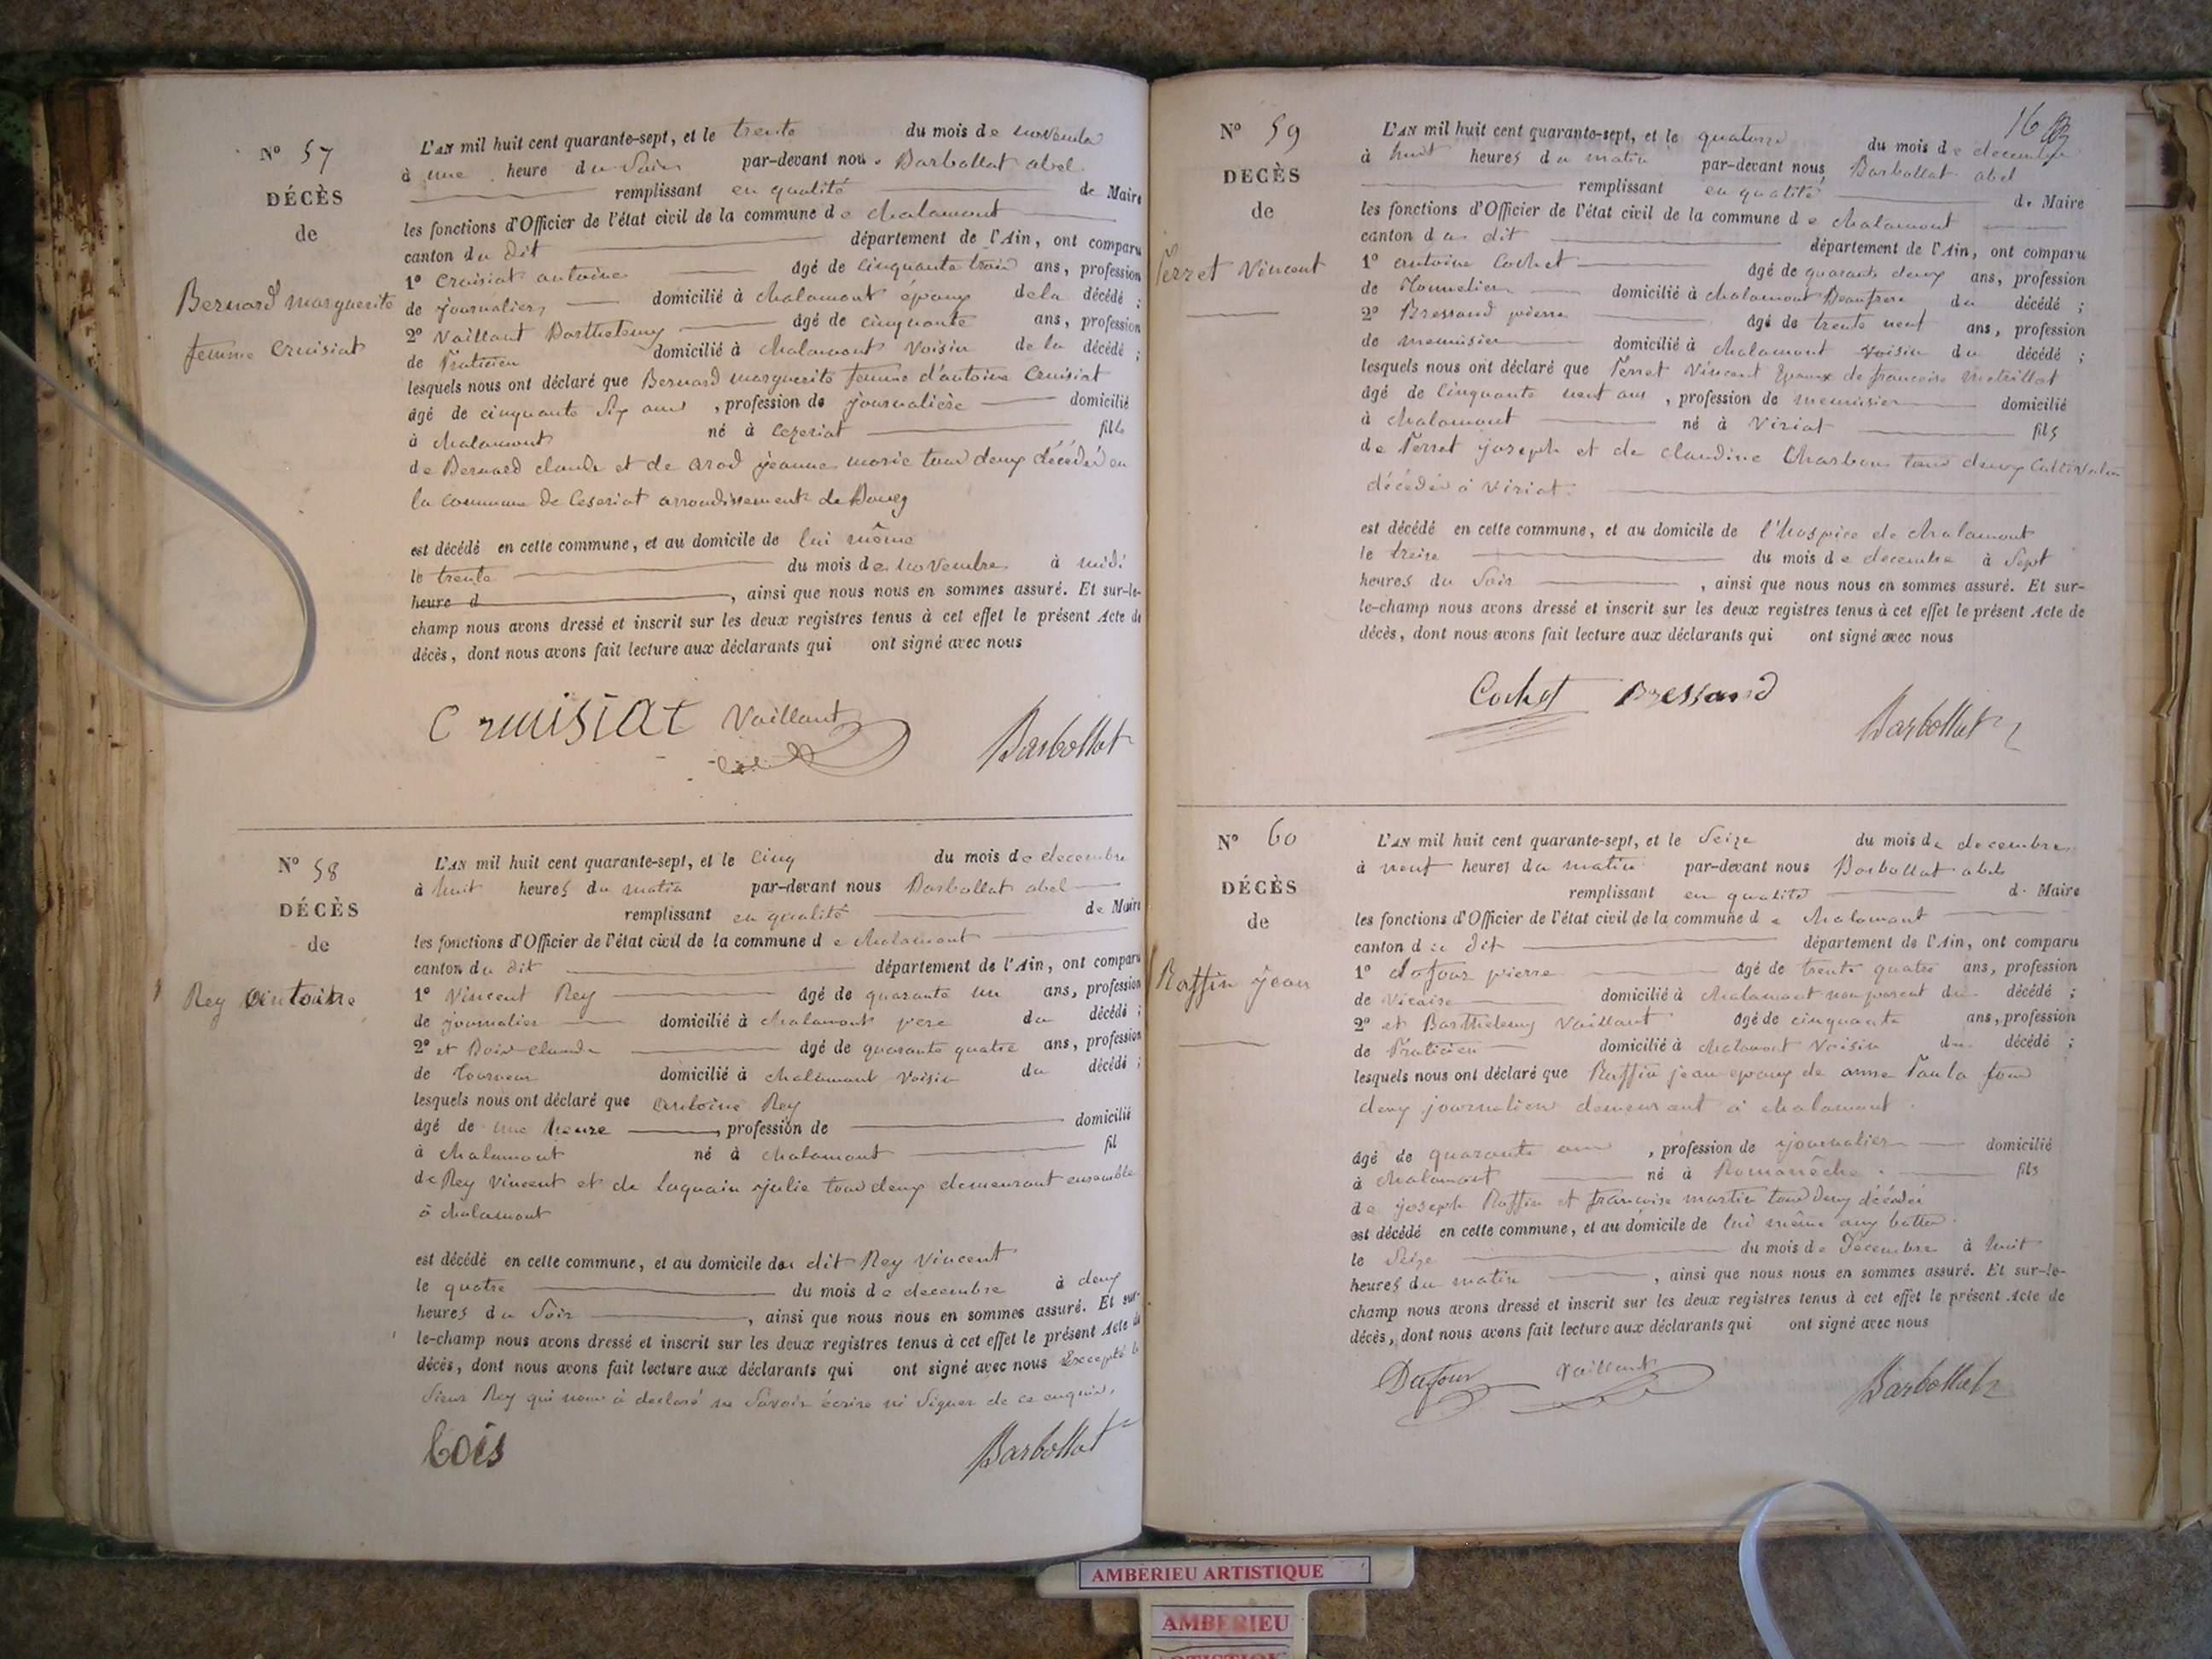 N° 57
DÉCÈS
de
Bernard marguerite
femme Cruisiat
L'AN mil huit cent quarante-sept, et le trente du mois de novembre
à une heure du Soir par-devant nous Barbollat abel
remplissant en qualité de Maire
les fonctions d'Officier de l'état civil de la commune de chalamont
canton du dit département de l'Ain, ont comparu
1° Cruisiat antoine âgé de cinquante trois ans, profession
de journalier domicilié à chalamont époux de la décédé ;
2° Vaillant Barthelemy âgé de cinquante ans, profession
de Praticien domicilié à chalamont Voisin de la décédé ;
lesquels nous ont déclaré que Bernard marguerite femme d'antoine Cruisiat
âgé de cinquante six ans , profession de journalière domicilié
à chalamont né à Cezeriat fille
de Bernard claude et de arod jeanne marie tous deux décédés en
la commune de Ceseriat arrondissement de Bourg
est décédé en cette commune, et au domicile de lui même
le trente du mois de novembre à midi
heure d , ainsi que nous nous en sommes assuré. Et sur-le-
champ nous avons dressé et inscrit sur les deux registres tenus à cet effet le présent Acte de
décès, dont nous avons fait lecture aux déclarants qui ont signé avec nous
Cruisiat Vaillant Barbollat
N° 58
DÉCÈS
de
Rey antoine
L'AN mil huit cent quarante-sept, et le cinq du mois de decembre
à huit heures du matin par-devant nous Barbollat abel
remplissant en qualité de Maire
les fonctions d'Officier de l'état civil de la commune de chalamont
canton du dit département de l'Ain, ont comparu
1° Vincent Rey âgé de quarante un ans, profession
de journalier domicilié à chalamont pere du décédé ;
2° et Bois claude âgé de quarante quatre ans, profession
de Tourneur domicilié à chalamont Voisin du décédé ;
lesquels nous ont déclaré que antoine Rey
âgé de une heure , profession de domicilié
à chalamont né à chalamont fil
de Rey Vincent et de Laquain julie tous deux demeurant ensemble
à chalamont
est décédé en cette commune, et au domicile du dit Rey Vincent
le quatre du mois de decembre à deux
heures du Soir , ainsi que nous nous en sommes assuré. Et sur-
le-champ nous avons dressé et inscrit sur les deux registres tenus à cet effet le présent Acte de
décès, dont nous avons fait lecture aux déclarants qui ont signé avec nous Excepté le
Sieur Rey qui nous à declaré ne Savoir écrire ni Signer de ce enquis.
bois Barbollat
16
N° 59
DECÈS
de
Perret Vincent
L'AN mil huit cent quarante-sept, et le quatorze du mois de decembre
à huit heures du matin par-devant nous Barbollat abel
remplissant en qualité de Maire
les fonctions d'Officier de l'état civil de la commune de chalamont
canton du dit département de l'Ain, ont comparu
1° antoine Cochet âgé de quarante deux ans, profession
de Tonnelier domicilié à chalamont Beaufrere du décédé ;
2° Bressand pierre âgé de trente neuf ans, profession
de menuisier domicilié à chalamont Voisin du décédé ;
lesquels nous ont déclaré que Perret Vincent Epoux de francoise
âgé de cinquante neuf ans , profession de menuisier domicilié
à chalamont né à Viriat fils
de Perret joseph et de claudine Charbon tous deux Cultivateurs
décédés à Viriat.
est décédé en cette commune, et au domicile de l'hospice de chalamont
le treize du mois de decembre à Sept
heures du Soir , ainsi que nous nous en sommes assuré. Et sur-
le-champ nous avons dressé et inscrit sur les deux registres tenus à cet effet le présent Acte de
décès, dont nous avons fait lecture aux déclarants qui ont signé avec nous
Cochet Bressand Barbollat
N° 60
DÉCÈS
de
Raffin jean
L'AN mil huit cent quarante-sept, et le Seize du mois de decembre
à neuf heures du matin par-devant nous Barbollat abel
remplissant en qualité de Maire
les fonctions d'Officier de l'état civil de la commune de chalamont
canton du dit département de l'Ain, ont comparu
1° dufour pierre âgé de trente quatre ans, profession
de Vicaire domicilié à chalamont non parent du décédé ;
2° et Barthelemy Vaillant âgé de cinquante ans, profession
de Praticien domicilié à chalamont Voisin du décédé ;
lesquels nous ont déclaré que Raffin jean epoux de anne Paula tous
deux journaliers demeurant à chalamont.
âgé de quarante ans , profession de journalier domicilié
à chalamont né à Romanèche. fils
de joseph Raffin et francoise martin tous deux décédés
est décédé en cette commune, et au domicile de lui même aux
le Seize du mois de Decembre à huit
heures du matin , ainsi que nous nous en sommes assuré. Et sur-le-
champ nous avons dressé et inscrit sur les deux registres tenus à cet effet le présent Acte de
décès, dont nous avons fait lecture aux déclarants qui ont signé avec nous
Dufour Vaillant Barbollat
AMBERIEU ARTISTIQUE
AMBERIEU
ARTISTIQUE